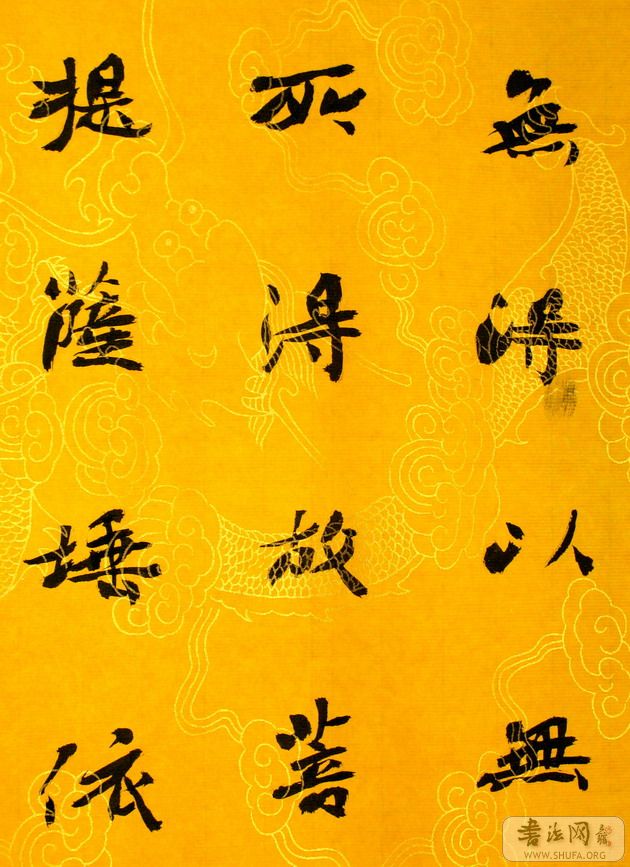 無得以無
所得故菩
提薩埵依
書法网
WWW.SHUFA.ORG